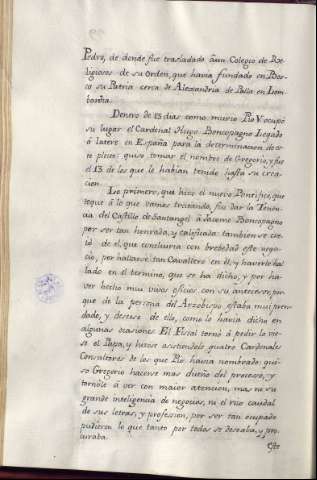 Pedro, de donde fue trasladado à un Colegio de Re-
ligiosos de su Orden, que havia fundado en Bos-
co su Patria cerca de Alexandria de Palla en Lom-
bardia.
Dentro de 13 dias como murio Pio V ocupó
su lugar el Cardenal Hugo Boncopagno Legado
à latere en España para la determinacion de es-
te pleito: quiso tomar el nombre de Gregorio, y fue
el 13 de los que le habian tenido hasta su crea-
cion
Lo primero, que hizo el nuevo Pontifice, que
toque à lo que vamos tratando, fue dar la Tenen-
cia del Castillo de Santangel à Jacome Boncopagno
por ser tan honrada, y calificada: tambien se cre-
ió de el, que concluiria con brebedad este nego-
cio, por hallarse tan Cavallero en el, y haverle ha-
lado en el termino, que se ha dicho, y por ha-
ver hecho mui vivos oficios con su antecesor, por
que de la persona del Arzobispo estaba mui pren-
dado, y deseoso de ello, como lo havia dicho en
algunas ocasiones. El Fiscal tornó à pedir lo vie-
se el Papa, y hizose asistiendole quatro Cardenales
Consultores de los que Pio havia nombrado; qui-
so Gregorio hacerse mas dueño del proceso, y
tornóle à ver con maior atencion, mas ni su
grande inteligencia de negocios, ni el rico caudal
de sus letras, y profession, por ser tan ocupado
pudieron lo que tanto por todos se deseaba, y pro-
curaba.
Este